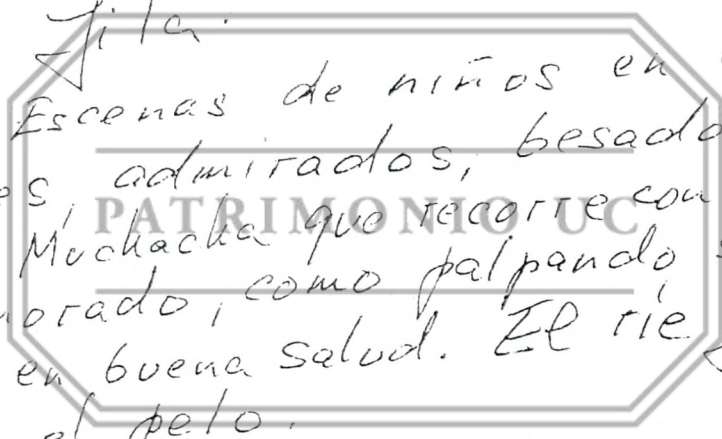 fila.
Escenas de niños en
es, admirados, besado
PATRIMONIO UC
Muchacha que recorre con
orado, como palpando s
en buena salud. El ríe
el pelo.